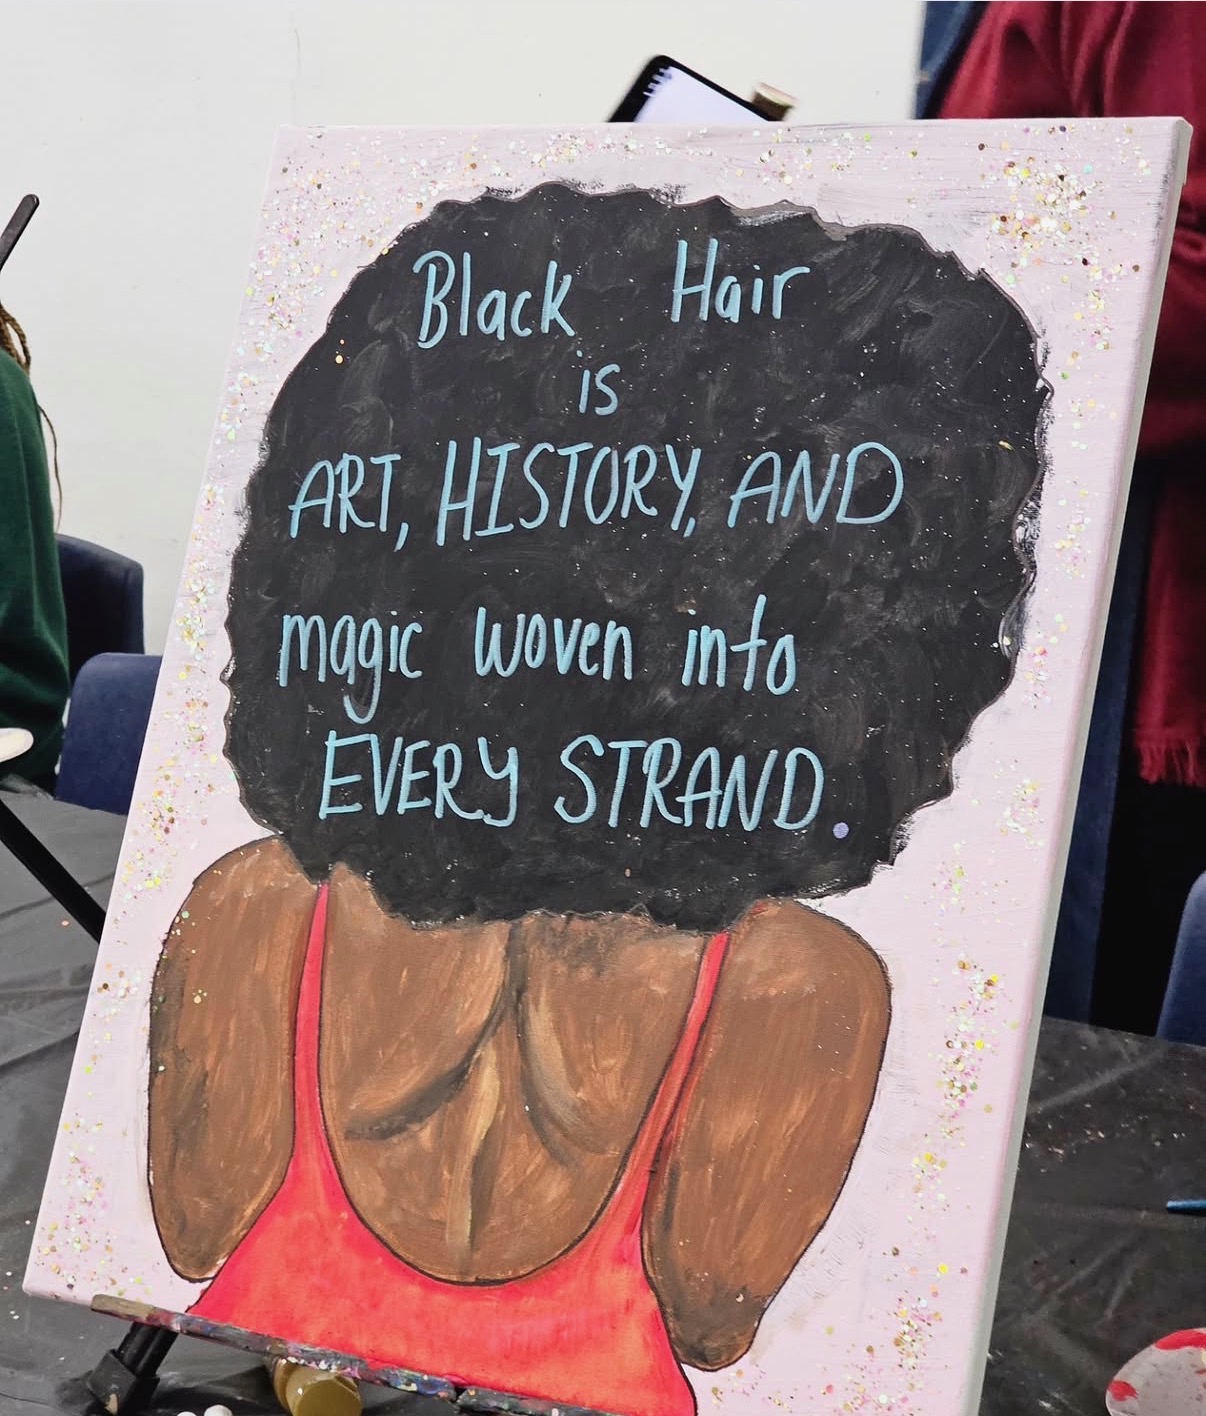 Black Hair
is
ART, HISTORY, AND
magic woven into
EVERY STRAND.